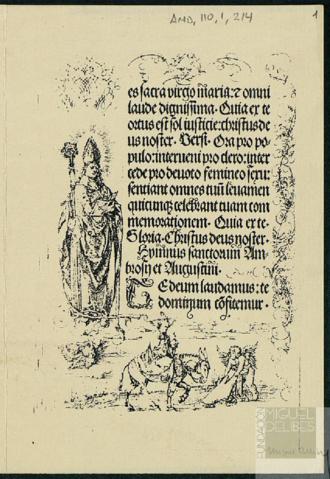 AMD, 110, 1, 214
1
es sacra virgo maria: & omni
laude dignissima. Quia ex te
ortus est sol iusticie: christus de
us noster. Versi. Ora pro po
pulo: interueni pro clero: inter
cede pro deuoto femineo sexu:
sentiant omnes tuū leuamen
quicunqz celebrant tuam com
memorationem. Quia ex te.
Gloria. Christus deus noster.
Hymnus sanctorum Am
brosij et Augustini.
TE deum laudamus: te
dominum cōfitemur.
FUNDACIÓN
MIGUEL
DELIBES